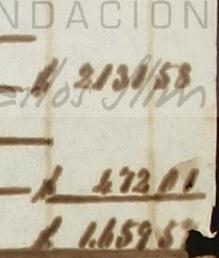 NDACION
$ 2.131 58
$ 472 01
$ 1.659 5